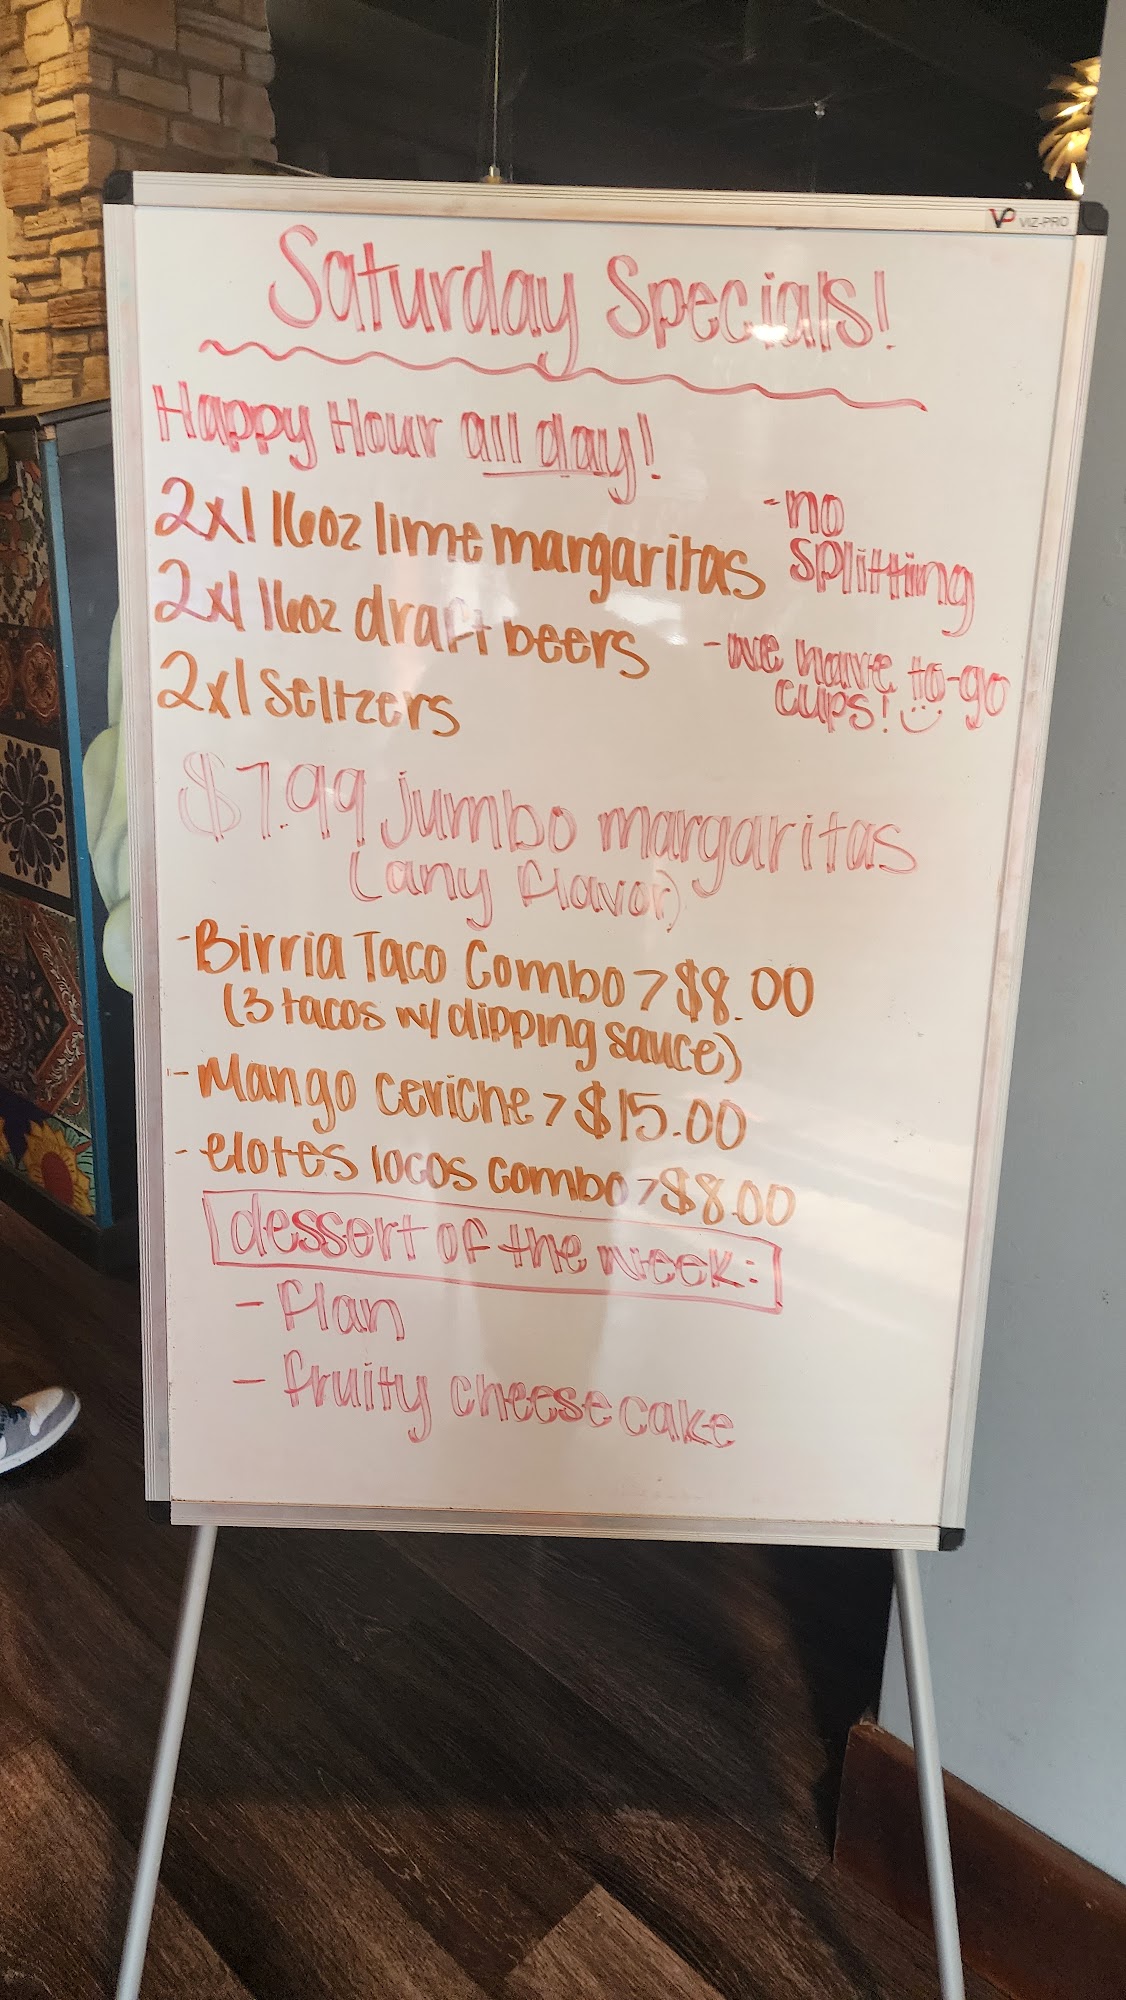 VP VIZ-PRO
Saturday Specials!
Happy Hour all day!
2x1 16oz lime margaritas
2x1 16oz draft beers
2x1 Seltzers
-no
splitting
-we have to-go
cups!
$7.99 jumbo margaritas
(any flavor)
-Birria Taco Combo > $8.00
(3 tacos w/ dipping sauce)
-Mango Ceviche > $15.00
-elotes locos combo > $8.00
dessert of the week:
- flan
- fruity cheesecake